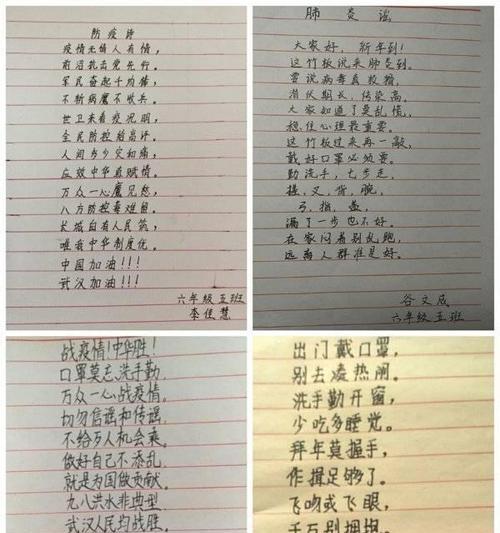 防疫诗
疫情无情人有情，
前沿抗击爱先行。
军民奋起千均棒，
不斩病魔不收兵。
世卫来看疫况明，
全民防控给高评。
人间多少灾和痛，
应效中华真赋情。
万众一心魔见愁，
八方防控毒难留。
长城自有人民筑，
唯有中华制度优。
中国加油!!!
武汉加油!!!
六年级五班
李佳慧
肺炎谣
大家好，新年到!
这竹板说来肺炎到。
要说病毒真狡猾，
潜伏期长，传染高。
大家知道了是乱慌，
稳住心理最重要。
这竹板过来再一敲，
戴好口罩必须要。
勤洗手，七步走，
搓，叉，背，腕，
弓，指，盖，
漏了一步也不好。
在家闷着别乱跑，
远离人群准是好。
谷文成
六年级五班
战疫情!中华胜!
口罩莫忘洗手勤，
万众一心战疫情。
切勿信谣和传谣，
不给坏人机会乘。
做好自己不添乱，
就是为国做贡献。
九八洪水非典型，
武汉人民均战胜。
出门戴口罩，
别去凑热闹。
洗手勤开窗，
少吃多睡觉。
拜年莫握手，
作揖足够了。
飞吻或飞眼，
千万别拥抱。